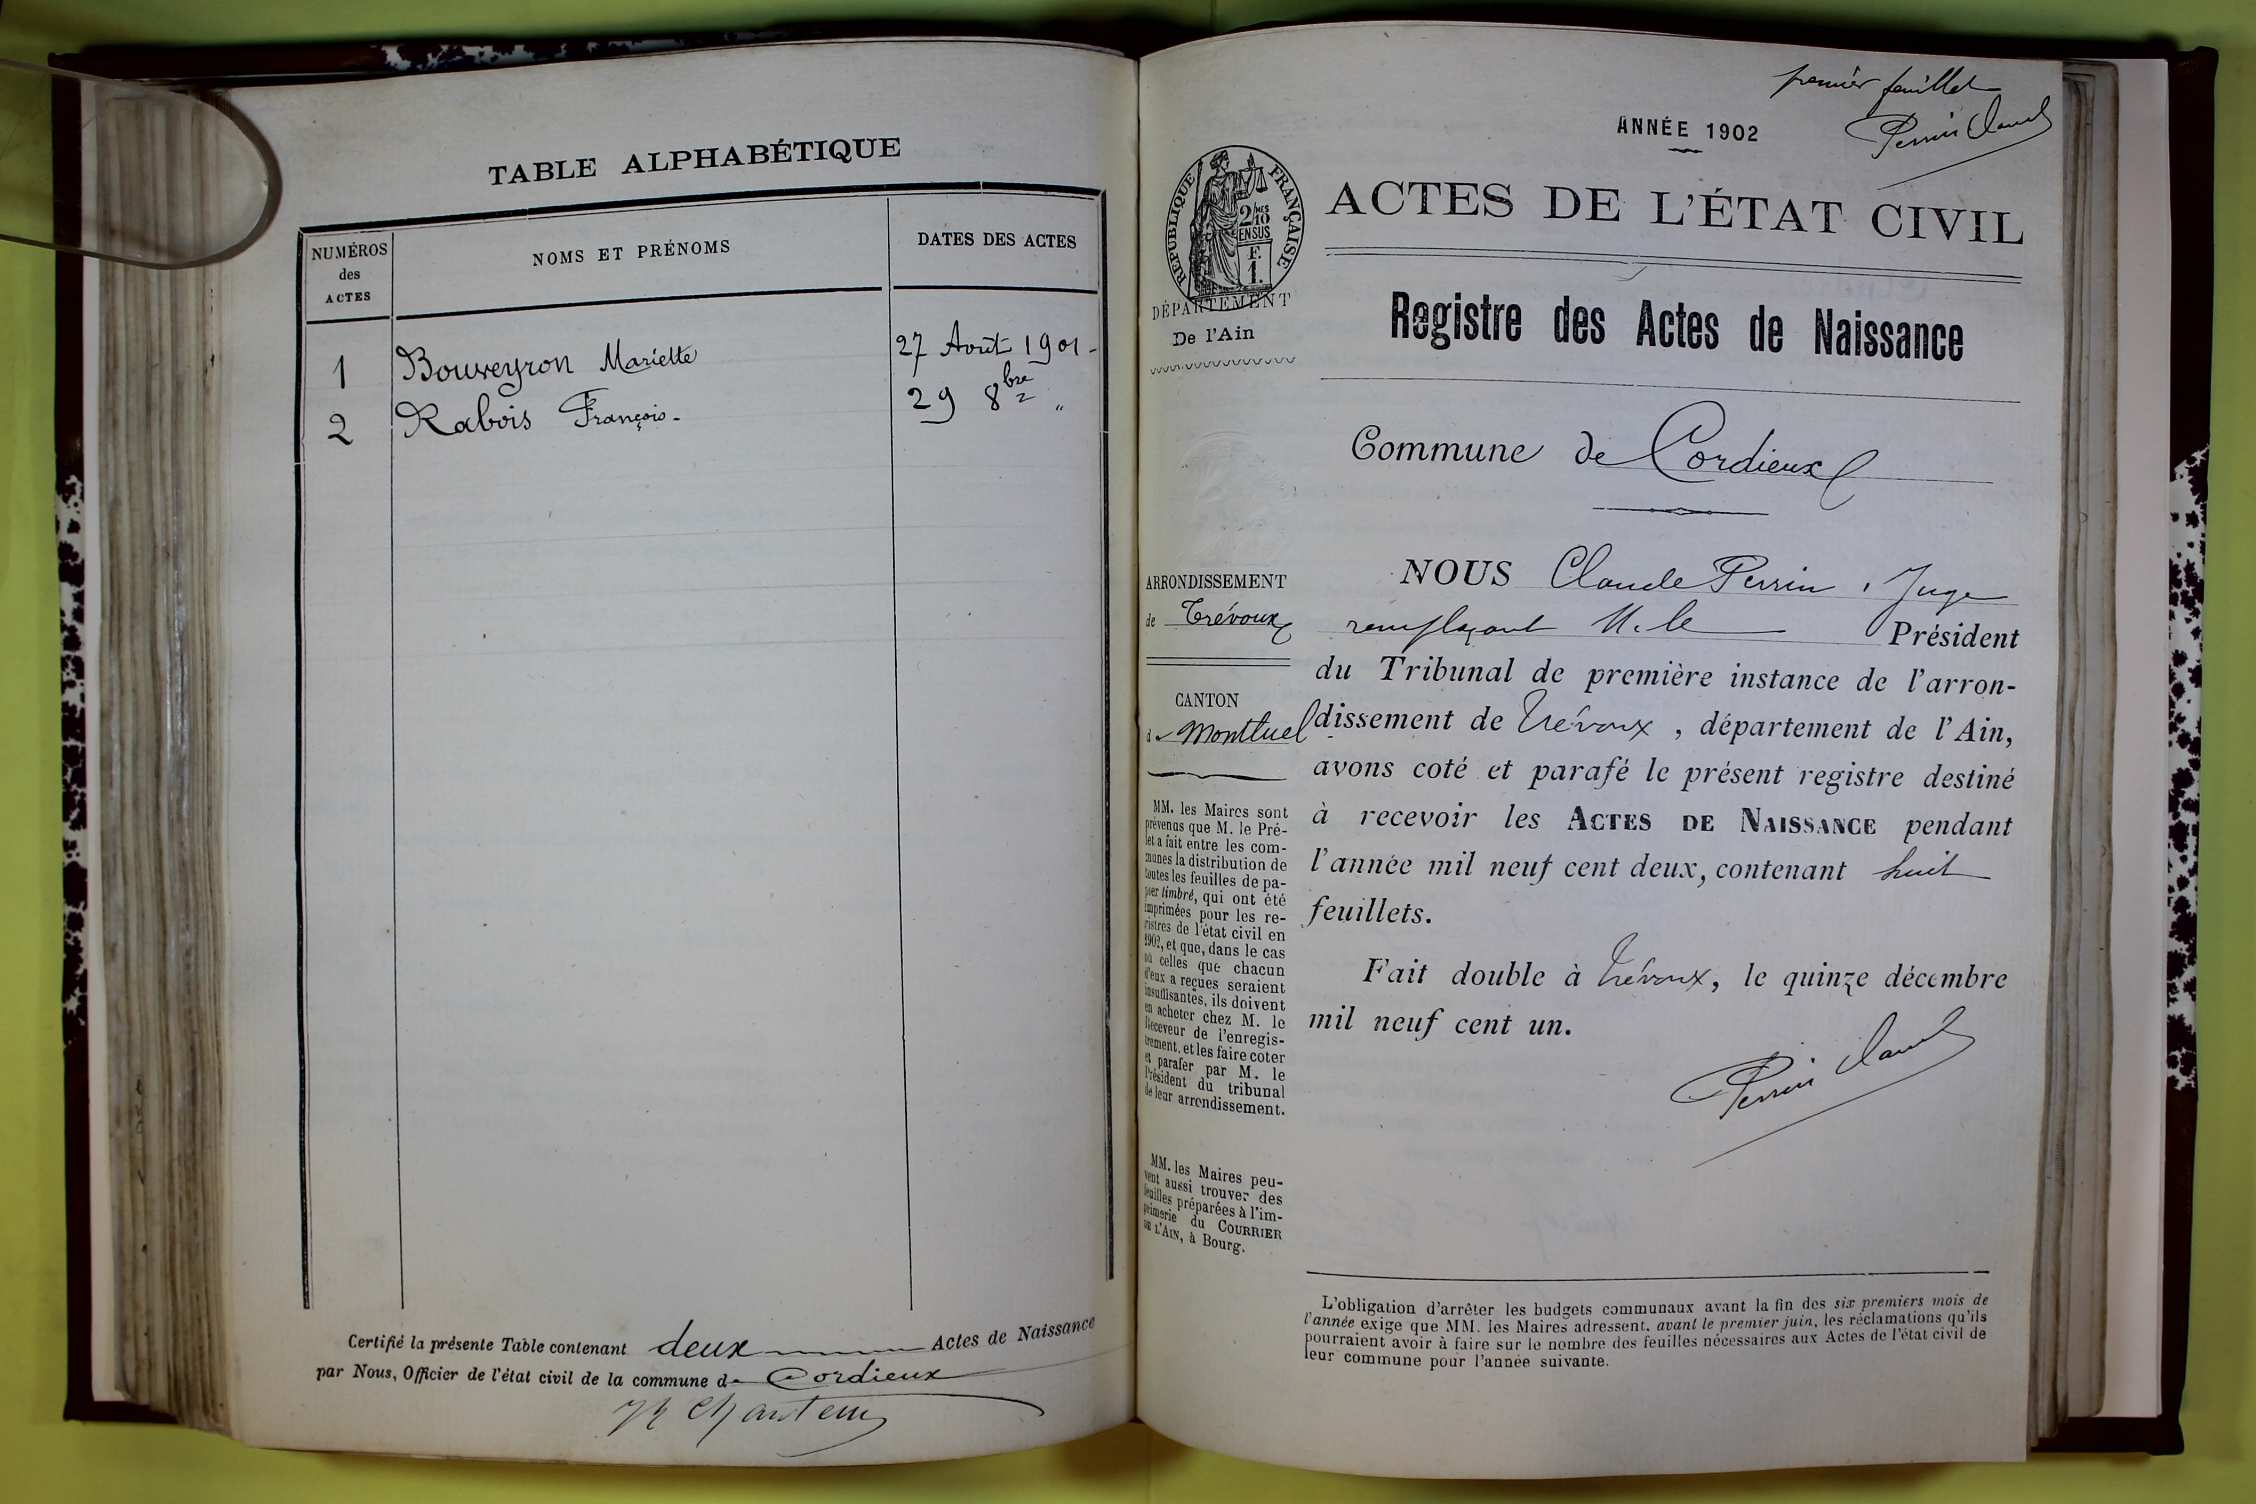 TABLE ALPHABÉTIQUE
NUMÉROS des ACTES
NOMS ET PRÉNOMS
DATES DES ACTES
1 Bouveyron Mariette 27 Août 1901 -
2 Rabois François - 29 8bre "
Certifié la présente Table contenant deux Actes de Naissance
par Nous, Officier de l'état civil de la commune de Cordieux
premier feuillet
Perrin Claude
ANNÉE 1902
RÉPUBLIQUE FRANÇAISE
2/10 MES
EN SUS
F.
1.
ACTES DE L'ÉTAT CIVIL
DÉPARTEMENT
De l'Ain
Registre des Actes de Naissance
Commune de Cordieux
ARRONDISSEMENT
de Trévoux
CANTON
de Montluel
MM. les Maires sont
prévenus que M. le Pré-
fet a fait entre les com-
munes la distribution de
toutes les feuilles de pa-
pier timbré, qui ont été
imprimées pour les re-
gistres de l'état civil en
1902, et que, dans le cas
où celles que chacun
d'eux a reçues seraient
insuffisantes, ils doivent
en acheter chez M. le
Receveur de l'enregis-
trement, et les faire coter
et parafer par M. le
Président du tribunal
de leur arrondissement.
MM. les Maires peu-
vent aussi trouver des
feuilles préparées à l'im-
primerie du COURRIER
DE L'AIN, à Bourg.
NOUS Claude Perrin, Juge
remplaçant M. le Président
du Tribunal de première instance de l'arron-
dissement de Trévoux, département de l'Ain,
avons coté et parafé le présent registre destiné
à recevoir les ACTES DE NAISSANCE pendant
l'année mil neuf cent deux, contenant huit
feuillets.
Fait double à Trévoux, le quinze décembre
mil neuf cent un.
Perrin Claude
L'obligation d'arrêter les budgets communaux avant la fin des six premiers mois de
l'année exige que MM. les Maires adressent, avant le premier juin, les réclamations qu'ils
pourraient avoir à faire sur le nombre des feuilles nécessaires aux Actes de l'état civil de
leur commune pour l'année suivante.